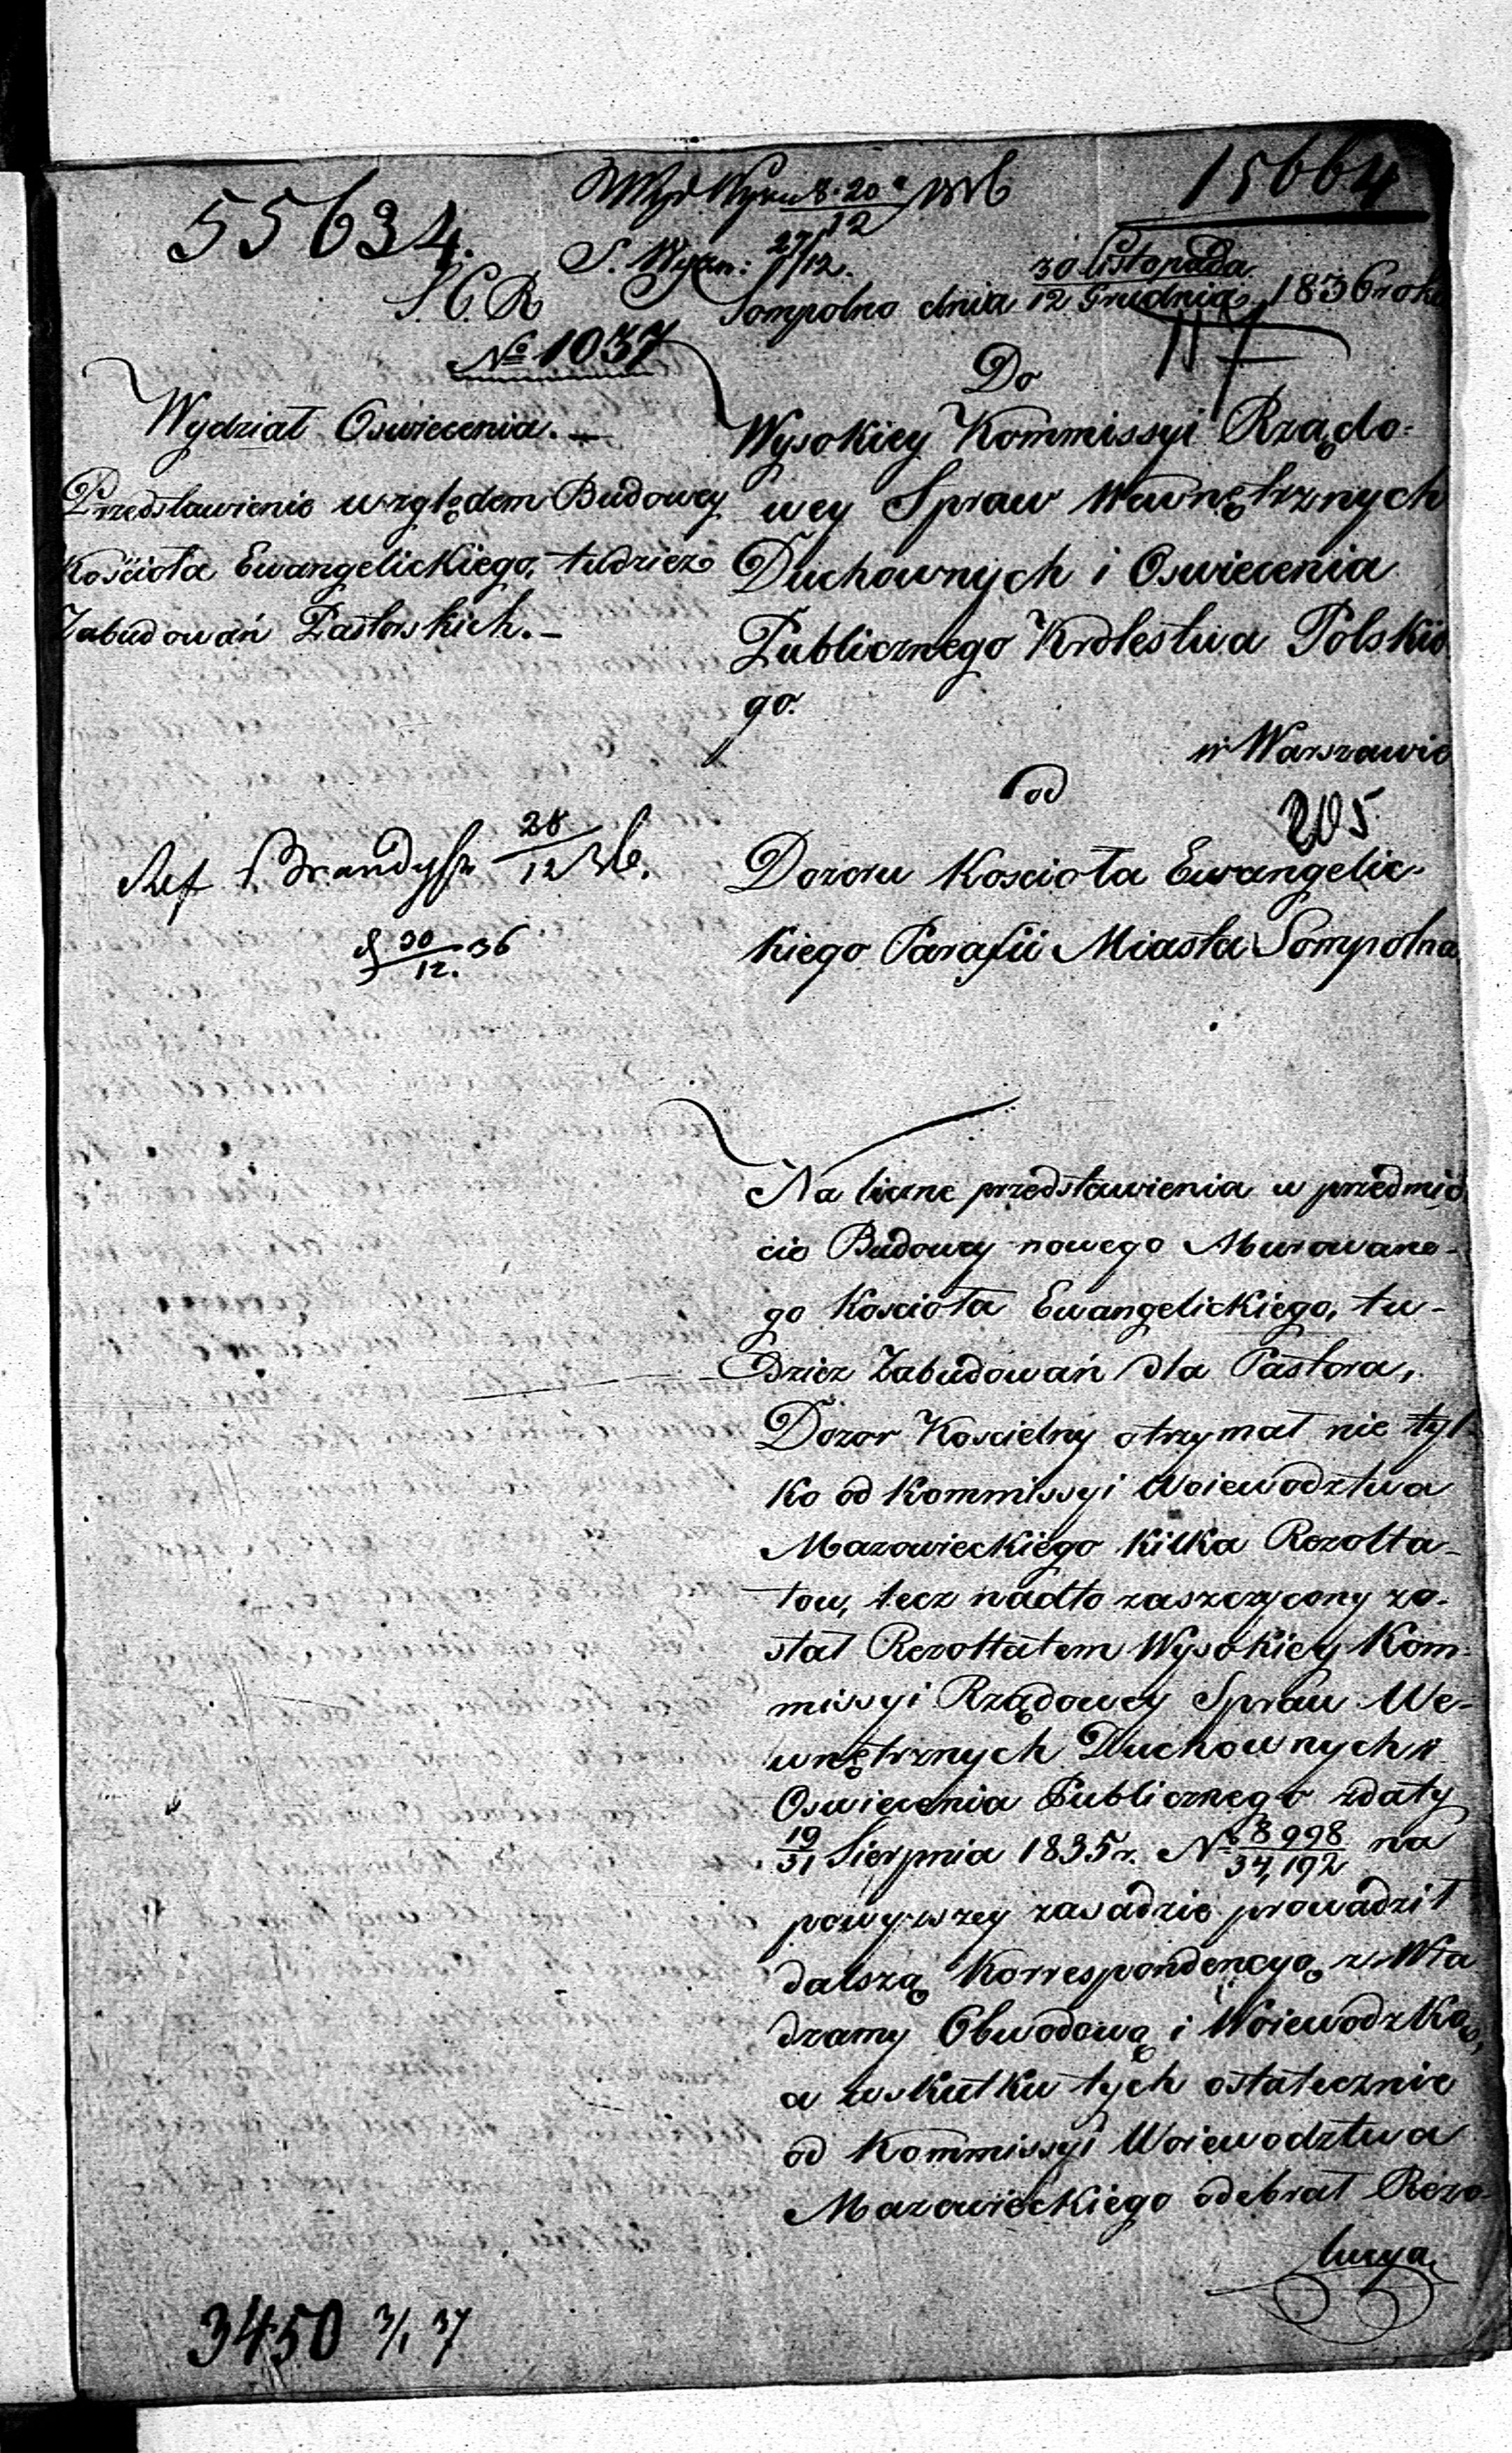 15664
55634.
8.20
12
S. Wyzn: 27/12.
S. C. R
Sompolno dnia 30 Listopada / 12 Grudnia 1836 roku
No 1037
Wydział Oswiecenia. —
Przedstawienie względem Budowy
Kościoła Ewangelickiego, tudzież
Zabudowań Pastorskich. —
Do
Wysokiey Kommissyi Rządo-
wey Spraw Wewnętrznych
Duchownych i Oswiecenia
Publicznego Krolestwa Polskie
go.
w Warszawie
od
205
Dozoru Kosciola Ewangelic-
kiego Parafii Miasta Sompolna
Ref 28/12 36.
30/12. 36
Na liczne przedstawienia w przedmio
cie Budowy nowego Murowane-
go Kosciola Ewangelickiego, tu-
dziez Zabudowań dla Pastora,
Dozor Koscielny otrzymał nie tyl-
ko od Kommissyi Woiewodztwa
Mazowieckiego kilka Rezolta-
tow, lecz nadto zaszczycony zo-
stał Rezoltatem Wysokiey Kom-
missyi Rządowey Spraw We-
wnętrznych Duchownych i
Oswiecenia Publicznego zdaty
19/31 Sierpnia 1835 r. No 8998/34,192 na
powyzszey zasadzie prowadził
dalszą Korrespondencyą z Wła
dzamy Obwodową i Woiewodzką,
a wskutku tych ostatecznie
od Kommissyi Woiewodztwa
Mazowieckiego odebrał Rezo-
lucya,
3450 3/1 37